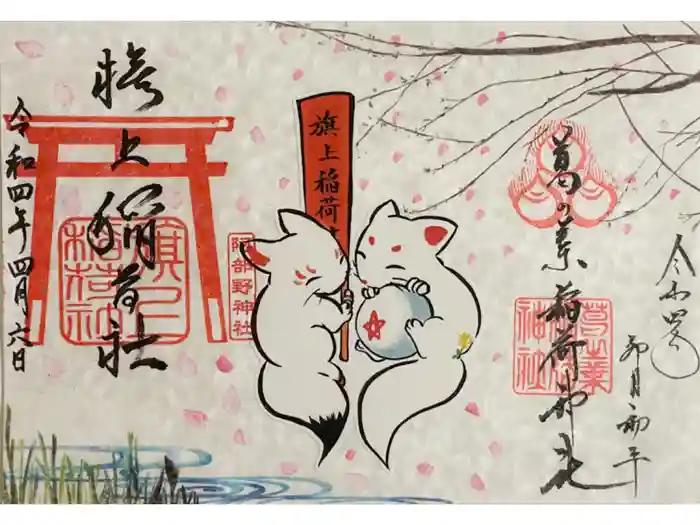 葛の葉稲荷神社
葛の葉
稲荷
神社
卯月初午
旗上稲荷
阿部野神社
旗上稲荷社
旗上
稲荷社
令和四年四月六日